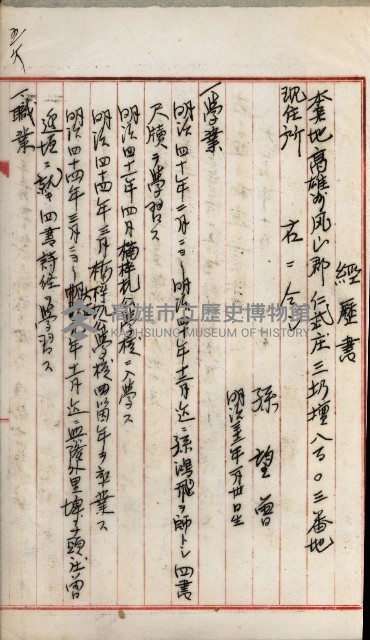 經歷書
本籍地 高雄州鳳山郡仁武庄三奶壇八百〇三番地
現住所 右ニ仝シ
孫望曾
明治 年 月廿日生
一學業
明治四十年二月ヨリ明治四十年十二月迄ニ孫鴻飛ヲ師トシ四書
尺牘ヲ學習ス
明治四十一年四月楠梓坑公學校ニ入學ス
明治四十四年三月楠梓坑公學校四箇年ヲ卒業ス
明治四十四年三月ヨリ 年十二月迄ニ興隆外里埤子頭庄曾
ニ就キ四書詩經ヲ學習ス
一職業
高雄市立歷史博物館
KAOHSIUNG MUSEUM OF HISTORY